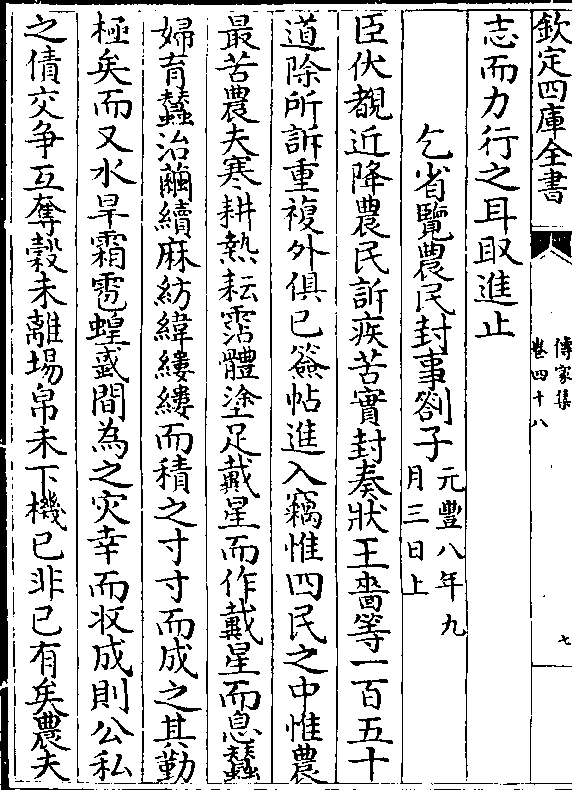 欽定四庫全書
傳家集
卷四十八
七
志而力行之耳取進止
乞省覽農民封事劄子元豐八年九
月三日上
臣伏覩近降農民訴疾苦實封奏狀王嗇等一百五十
道除所訴重複外俱已簽帖進入竊惟四民之中惟農
最苦農夫寒耕熱耘霑體塗足戴星而作戴星而息蠶
婦育蠶治繭績麻紡緯縷縷而積之寸寸而成之其勤
極矣而又水旱霜雹蝗蜮間為之灾幸而收成則公私
之債交争互奪榖未離場帛未下機已非已有矣農夫